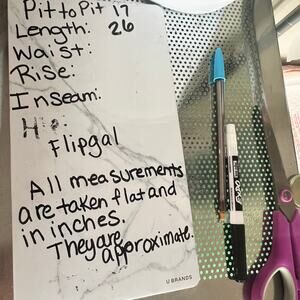 Pit to Pit 17
Length: 26
Waist:
Rise:
Inseam:
Flipgal
All measurements
are taken flat and
in inches.
They are
approximate.
U BRANDS